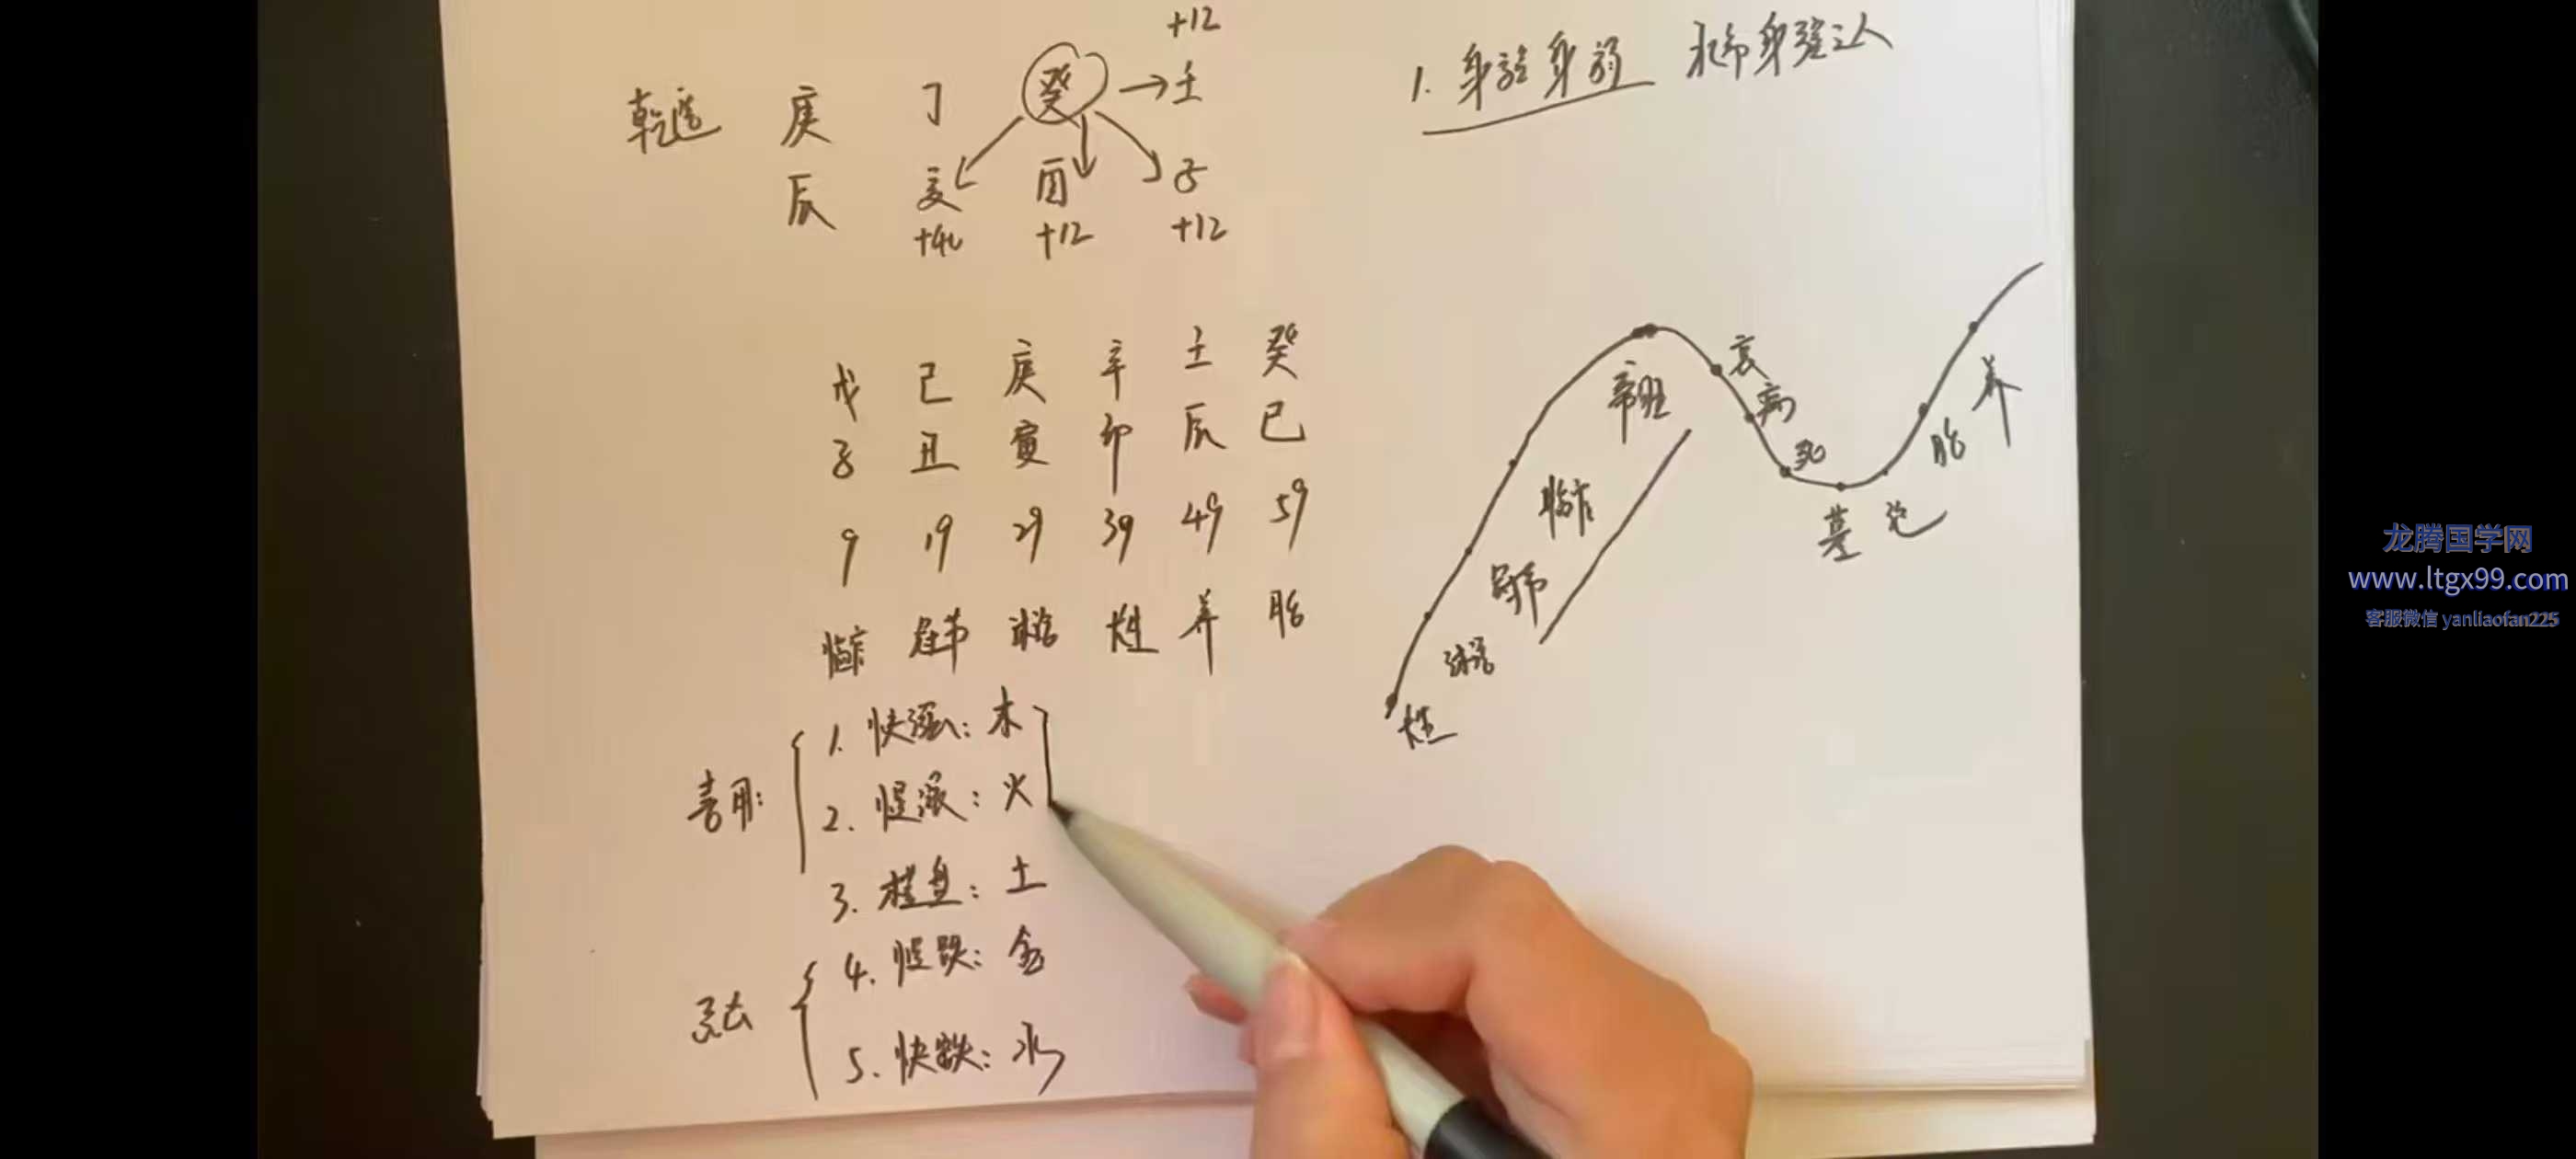 +12
乾造 庚 丁 癸 → 壬
辰 亥 酉 子
+40 +12 +12
1. 身强身弱 求命身强之人
戊 己 庚 辛 壬 癸
子 丑 寅 卯 辰 巳
9 19 29 39 49 59
临官 冠带 沐浴 长生 养 胎
喜用:
1. 快涨: 木
2. 慢涨: 火
3. 横盘: 土
忌
4. 慢跌: 金
5. 快跌: 水
帝旺
衰
病
死
墓 绝
胎
养
临官
冠带
沐浴
长生
龙腾国学网
www.ltgx99.com
客服微信 yanliaofan225